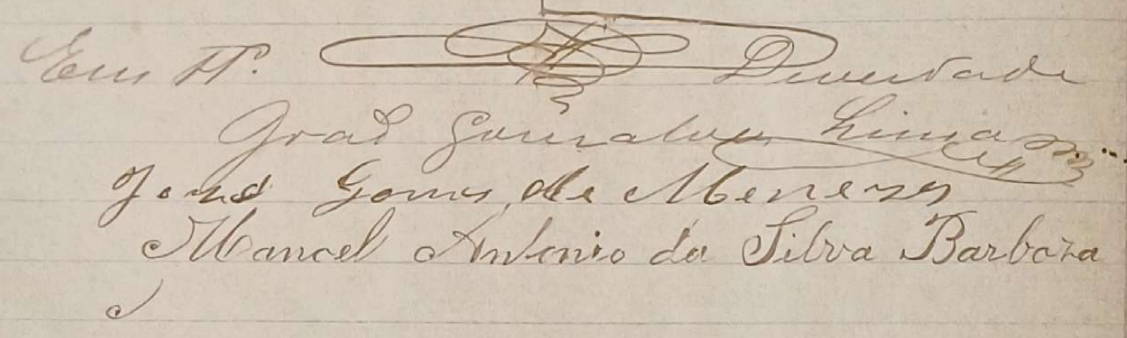 Em tt.º da verdade
Gonçalves Lima
Gomes de Menezes
Manoel Antonio da Silva Barboza